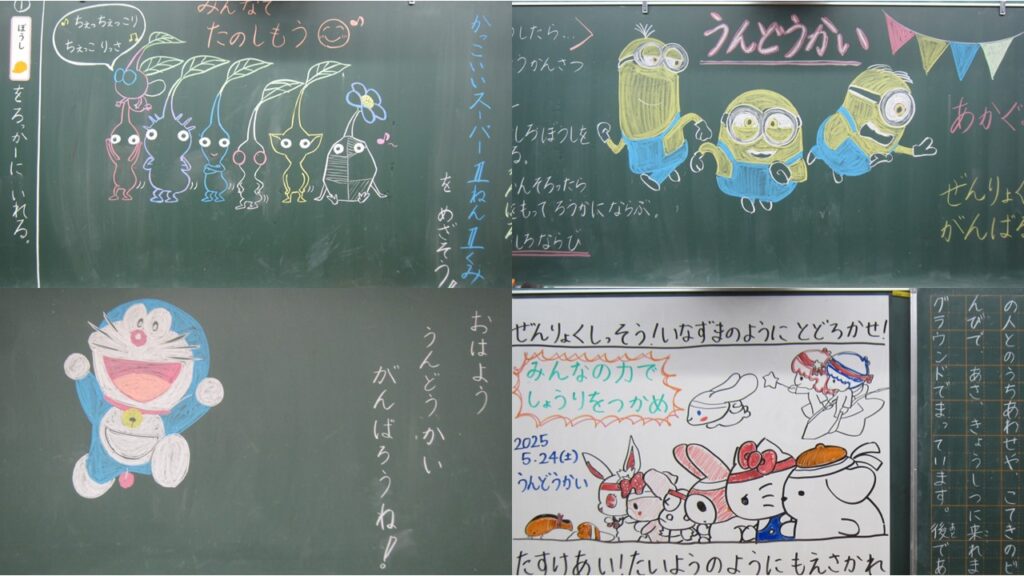 ぼうし
をろうかにいれる。
ちぇっちぇっこり
ちぇっこ りっさ
みんなで
たのしもう
かっこいいスーパー1ねん1くみ
を めざそう!
うんどうかい
したら…
うがんさつ
しろぼうしを
る。
んそろったら
もって ろうかに ならぶ。
しろならび
あかぐ
ぜんりょく
がんばる
おはよう
うんどうかい
がんばろうね!
ぜんりょくしっそう!いなずまのように とどろかせ!
みんなの力で
しょうりをつかめ
2025
5.24(土)
うんどうかい
たすけあい!たいようのように もえさかれ
の人とのうちあわせや、こてきのビ
んびで、あさ、きょうしつに来れま
グラウンドでまっています。後であ